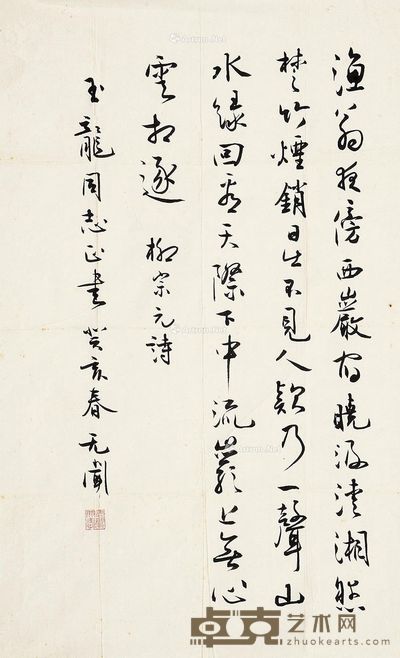 渔翁夜傍西巖宿曉汲清湘然
楚竹煙銷日出不見人欸乃一聲山
水緑回看天際下中流巖上無心
雲相逐 柳宗元詩
玉龍同志正書 癸亥春 无闻
卓克艺术网
www.zhuokearts.com